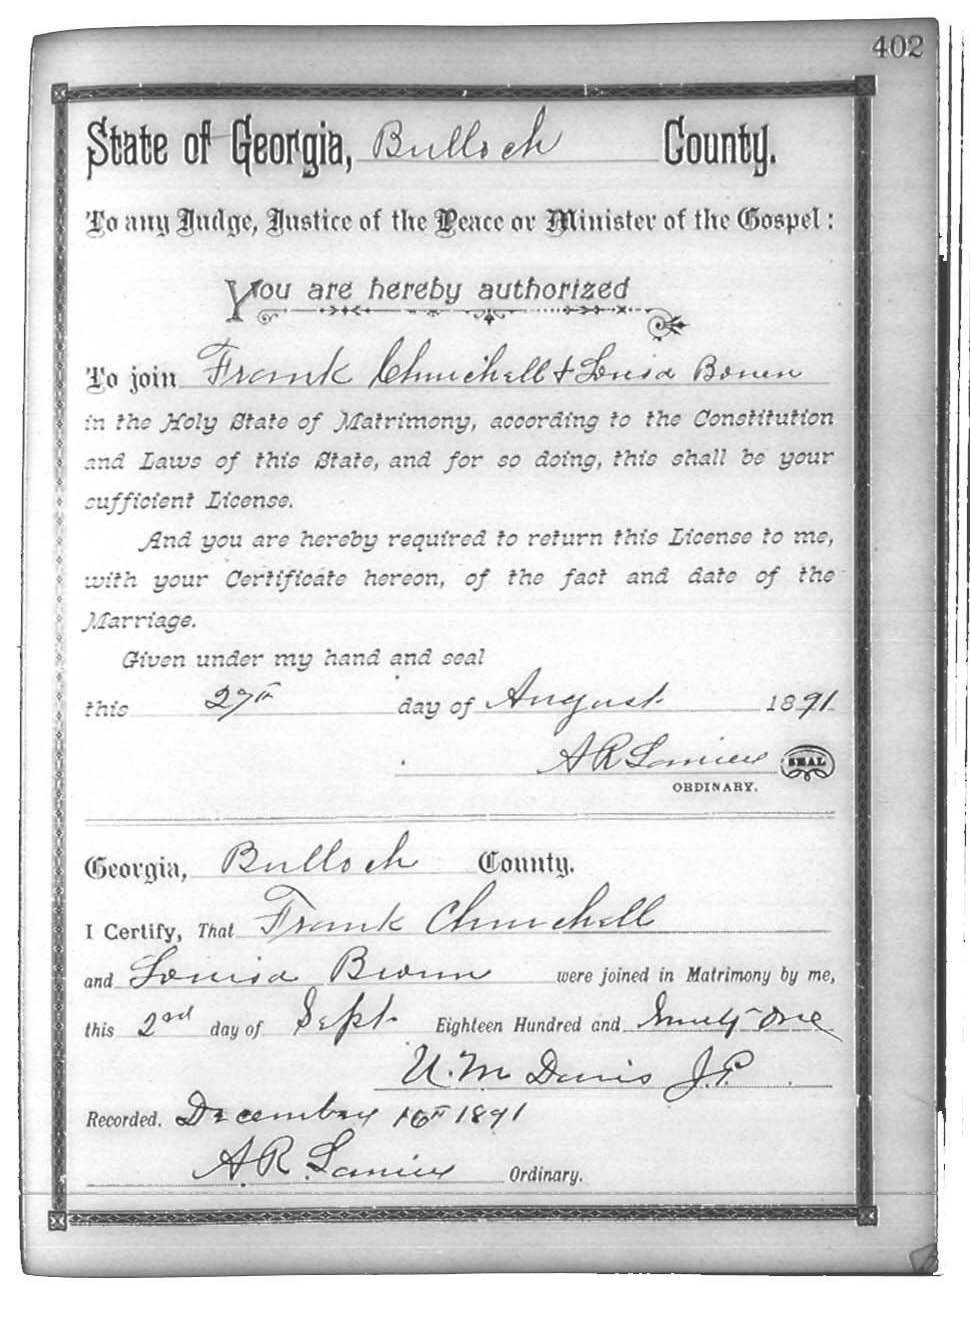 402
State of Georgia, Bulloch County.
To any Judge, Justice of the Peace or Minister of the Gospel:
You are hereby authorized
To join Frank Churchell & Louisa Bowen
in the Holy State of Matrimony, according to the Constitution
and Laws of this State, and for so doing, this shall be your
sufficient License.
And you are hereby required to return this License to me,
with your Certificate hereon, of the fact and date of the
Marriage.
Given under my hand and seal
this 27th day of August 1891
A R Lanier SEAL
ORDINARY.
Georgia, Bulloch County.
I Certify, That Frank Churchell
and Louisa were joined in Matrimony by me,
this 2nd day of Sept Eighteen Hundred and Ninety-One
U. M Davis J.P.
Recorded. December 16th 1891
A. R. Lanier Ordinary.